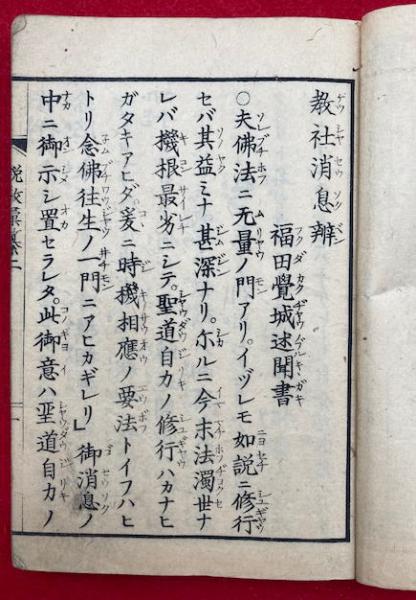 教社消息辨
福田覺城述聞書
○夫佛法ニ无量ノ門アリ。イヅレモ如説ニ修行
セバ其益ミナ甚深ナリ。尓ルニ今末法濁世ナ
レバ機根最劣ニシテ。聖道自力ノ修行ハカナヒ
ガタキアヒダ爰ニ時機相應ノ要法トイフハヒ
トリ念佛往生ノ一門ニアヒカギレリ」御消息ノ
中ニ御示シ置セラレタ。此御意ハ聖道自力ノ